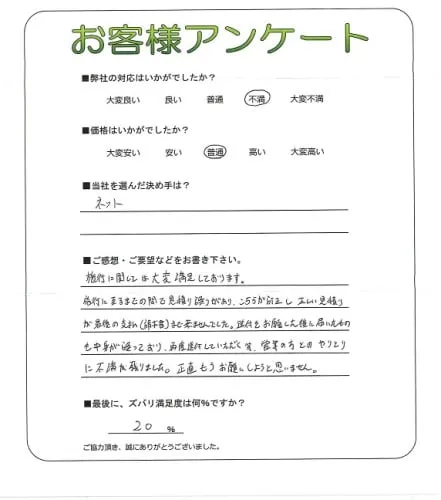 お客様アンケート
■弊社の対応はいかがでしたか？
大変良い 良い 普通 不満 大変不満
■価格はいかがでしたか？
大変安い 安い 普通 高い 大変高い
■当社を選んだ決め手は？
ネット
■ご感想・ご要望などをお書き下さい。
施行に関しては大変満足しております。
施行にまるまでの間で見積り誤りがあり、こちらから正し正しい見積り
が最後の支払(請求書)まで来ませんでした。送付をお願いした後に届いたもの
も中身が違っており、再度送付していただく等、営業の方とのやりとり
に不満が残りました。正直もうお願いしようと思いません。
■最後に、ズバリ満足度は何％ですか？
20 ％
ご協力頂き、誠にありがとうございました。